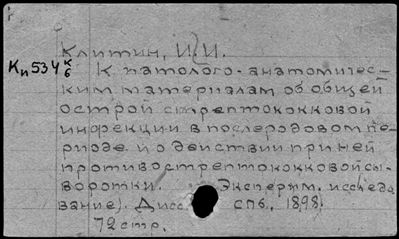 Клитин, И. И.
Кп 534 к/6
К патолого-анатомичес-
ким материалам об общей
острой стрептококковой
инфекции в послеродовом пе-
риоде и о действии при ней
противострептококковой сы-
воротки. Эксперим. исследо
вание). Дисс. СПб., 1898.
72 стр.